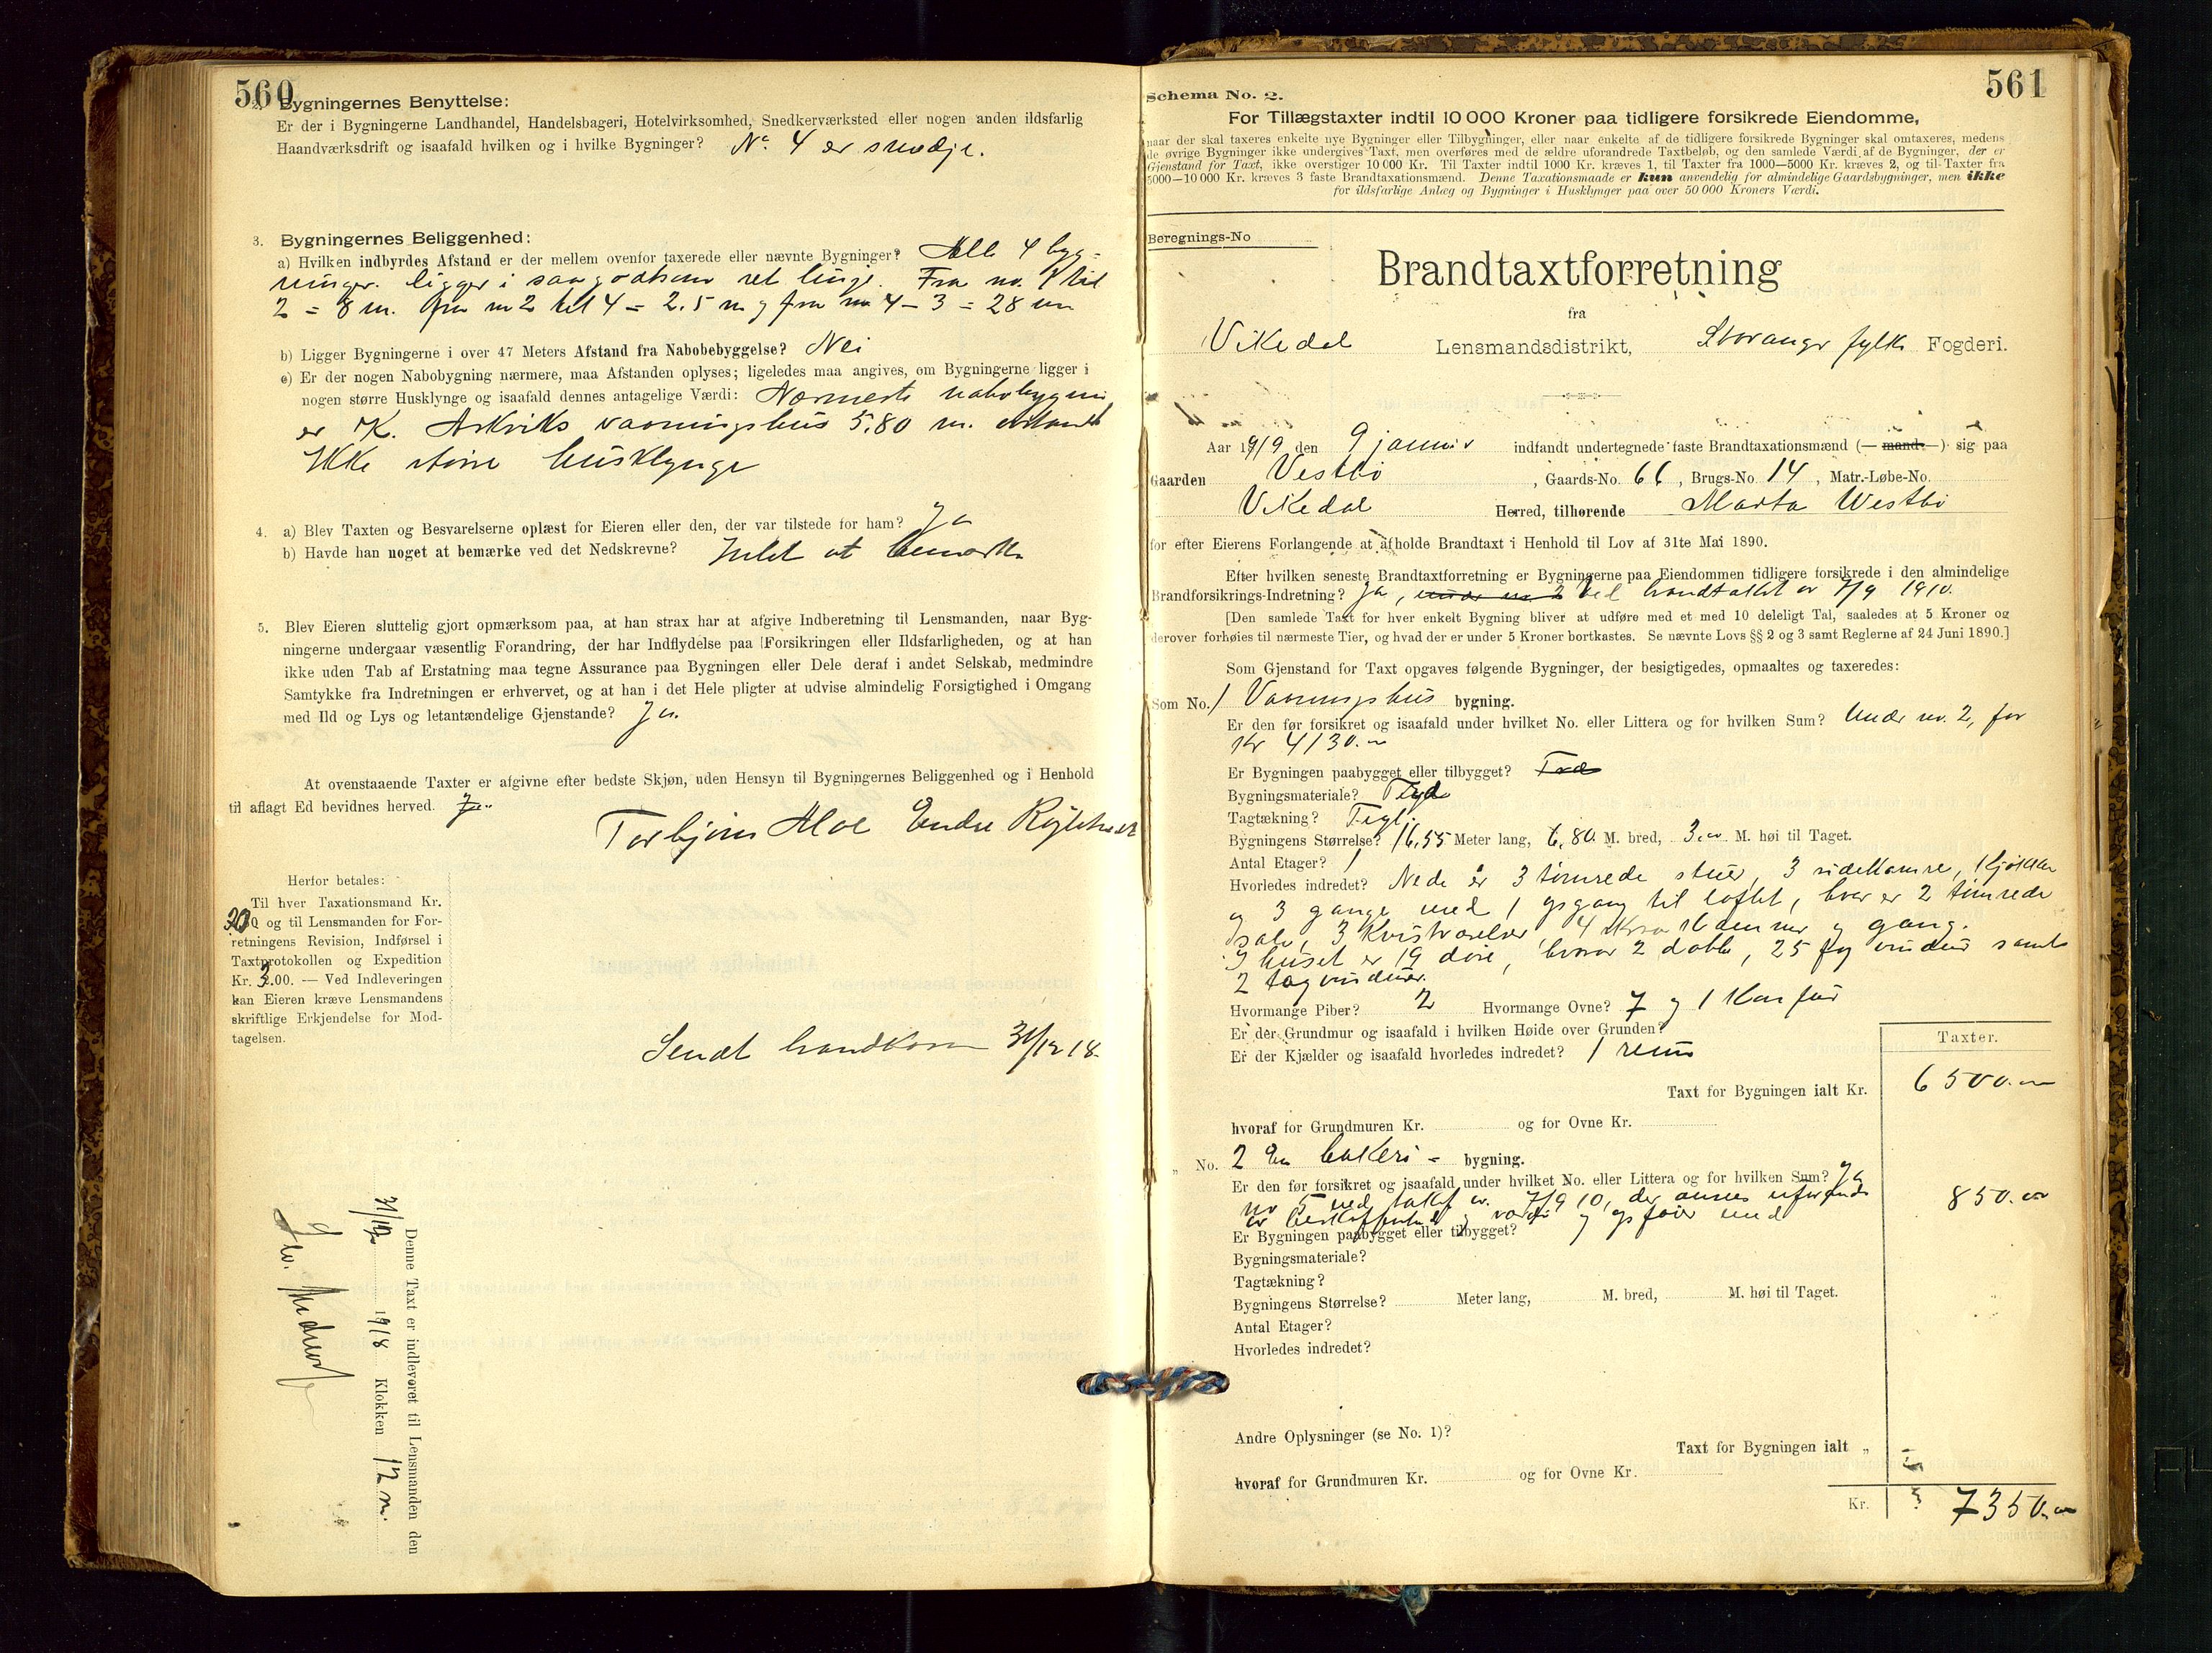 560
2. Bygningernes Benyttelse:
Er der i Bygningerne Landhandel, Handelsbageri, Hotelvirksomhed, Snedkerværksted eller nogen anden ildsfarlig
Haandværksdrift og isaafald hvilken og i hvilke Bygninger? No 4 er smedje.
3. Bygningernes Beliggenhed:
a) Hvilken indbyrdes Afstand er der mellem ovenfor taxerede eller nævnte Bygninger? Alle 4 byg-
ninger ligger i saagodtsom ret linje. Fra no. 1 til
2 = 8 m. fra no 2 til 4 = 2.5 m og fra no 4 - 3 = 28 m
b) Ligger Bygningerne i over 47 Meters Afstand fra Nabobebyggelse? Nei
c) Er der nogen Nabobygning nærmere, maa Afstanden oplyses; ligeledes maa angives, om Bygningerne ligger i
nogen større Husklynge og isaafald dennes antagelige Værdi: Nærmeste nabobygning
er K. Askviks vaaningshus 5.80 m. afstand
Ikke større husklynge
4. a) Blev Taxten og Besvarelserne oplæst for Eieren eller den, der var tilstede for ham? Ja
b) Havde han noget at bemærke ved det Nedskrevne? Intet at bemærke
5. Blev Eieren sluttelig gjort opmærksom paa, at han strax har at afgive Indberetning til Lensmanden, naar Byg-
ningerne undergaar væsentlig Forandring, der har Indflydelse paa Forsikringen eller Ildsfarligheden, og at han
ikke uden Tab af Erstatning maa tegne Assurance paa Bygningen eller Dele deraf i andet Selskab, medmindre
Samtykke fra Indretningen er erhvervet, og at han i det Hele pligter at udvise almindelig Forsigtighed i Omgang
med Ild og Lys og letantændelige Gjenstande? Ja.
At ovenstaaende Taxter er afgivne efter bedste Skjøn, uden Hensyn til Bygningernes Beliggenhed og i Henhold
til aflagt Ed bevidnes herved. Ja.
Torbjørn Aloe Endre
Herfor betales:
Til hver Taxationsmand Kr.
og til Lensmanden for For-
retningens Revision, Indførsel i
Taxtprotokollen og Expedition
Kr. 3.00. — Ved Indleveringen
kan Eieren kræve Lensmandens
skriftlige Erkjendelse for Mod-
tagelsen.
Sendt brandkassen 31/12 18.
Denne Taxt er indleveret til Lensmanden den
31/12 1918 Klokken 12 m.
561
Schema No. 2.
For Tillægstaxter indtil 10 000 Kroner paa tidligere forsikrede Eiendomme,
naar der skal taxeres enkelte nye Bygninger eller Tilbygninger, eller naar enkelte af de tidligere forsikrede Bygninger skal omtaxeres, medens
de øvrige Bygninger ikke undergives Taxt, men overføres med de ældre uforandrede Taxtbeløb, og den samlede Værdi af de Bygninger, der er
Gjenstand for Taxt, ikke overstiger 10 000 Kr. Til Taxter indtil 1000 Kr. kræves 1, til Taxter fra 1000—5000 Kr. kræves 2, og til Taxter fra
5000—10 000 Kr. kræves 3 faste Brandtaxationsmænd. Denne Taxationsmaade er kun anvendelig for almindelige Gaardsbygninger, men ikke
for ildsfarlige Anlæg og Bygninger i Husklynger paa over 50 000 Kroners Værdi.
Beregnings-No
Brandtaxtforretning
fra
Vikedal Lensmandsdistrikt, Stavanger fylke Fogderi.
Aar 1919 den 9 januar indfandt undertegnede faste Brandtaxationsmænd (— mand —) sig paa
Gaarden Vestbø, Gaards-No. 66, Brugs-No. 14, Matr.-Løbe-No.
Vikedal Herred, tilhørende Marta Westbø
for efter Eierens Forlangende at afholde Brandtaxt i Henhold til Lov af 31te Mai 1890.
Efter hvilken seneste Brandtaxtforretning er Bygningerne paa Eiendommen tidligere forsikrede i den almindelige
Brandforsikrings-Indretning? Ja, Ved brandtakst av 7/9 1910.
[Den samlede Taxt for hver enkelt Bygning bliver at udføre med et med 10 deleligt Tal, saaledes at 5 Kroner og
derover forhøies til nærmeste Tier, og hvad der er under 5 Kroner bortkastes. Se nævnte Lovs §§ 2 og 3 samt Reglerne af 24 Juni 1890.]
Som Gjenstand for Taxt opgaves følgende Bygninger, der besigtigedes, opmaaltes og taxeredes:
Som No. 1 Vaaningshus bygning.
Er den før forsikret og isaafald under hvilket No. eller Littera og for hvilken Sum? Under no. 2, for
Kr 4130.00
Er Bygningen paabygget eller tilbygget? Træ
Bygningsmateriale?
Tagtækning? Tegl.
Bygningens Størrelse? 16,55 Meter lang, 6,80 M. bred, 3.00 M. høi til Taget.
Antal Etager? 1
Hvorledes indredet? Nede er 3 tømrede stuer, 3 sidekamre, 1 kjøkken
og 3 gange med 1 opgang til loftet, hvor er 2 tømrede
sale, 3 kvistværelser 4 kammer og gang.
I huset er 19 døre, hvorav 2 doble, 25 fag vinduer samt
2 tagvinduer.
Hvormange Piber? 2 Hvormange Ovne? 7 og 1 komfur
Er der Grundmur og isaafald i hvilken Høide over Grunden?
Er der Kjælder og isaafald hvorledes indredet? 1 rum
Taxter.
Taxt for Bygningen ialt Kr. 6500.00
hvoraf for Grundmuren Kr. og for Ovne Kr.
„ No. 2 En bakeri- bygning.
Er den før forsikret og isaafald under hvilket No. eller Littera og for hvilken Sum? Ja
no 5 ved takst av 7/9 10, der ansees uforandr
av beskaffenhed og værdi og opføres med 850.00
Er Bygningen paabygget eller tilbygget?
Bygningsmateriale?
Tagtækning?
Bygningens Størrelse? Meter lang, M. bred, M. høi til Taget.
Antal Etager?
Hvorledes indredet?
Andre Oplysninger (se No. 1)?
Taxt for Bygningen ialt „
hvoraf for Grundmuren Kr. og for Ovne Kr.
Kr. 7350.00